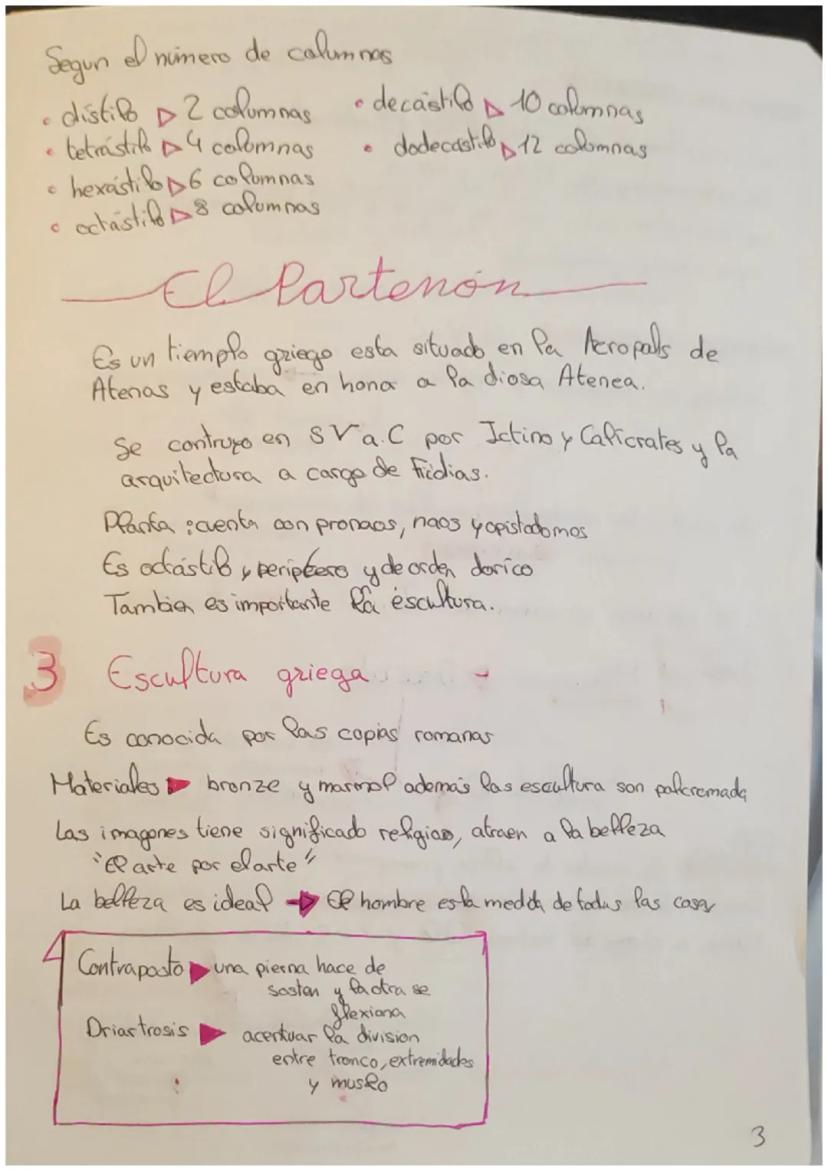 Segun el número de columnas
• dístilo ▷ 2 columnas
• tetrástilo ▷ 4 columnas
• hexástilo ▷ 6 columnas
• octástilo ▷ 8 columnas
• decástilo ▷ 10 columnas
• dodecastilo ▷ 12 columnas
El Partenón
Es un tiemplo griego esta situado en la Acropolis de
Atenas y estaba en honor a la diosa Atenea.
Se contruyo en S V a.C por Ictino y Calicrates y la
arquitectura a cargo de Fidias.
Planta: cuenta con pronaos, naos y opistodomos
Es octástilo, periptero y de orden dorico
Tambien es importante la escultura.
3 Escultura griega
Es conocida por las copias romanas
Materiales ▶ bronze y marmol además las escultura son policremada
Las imagenes tiene significado religioso, atraen a la belleza
"El arte por el arte"
La belleza es ideal → El hombre es la medida de todas las cosas
Contraposto ▶ una pierna hace de
sosten y la otra se
flexiona
Driartrosis ▶ acentuar la division
entre tronco, extremidades
y muslo
3